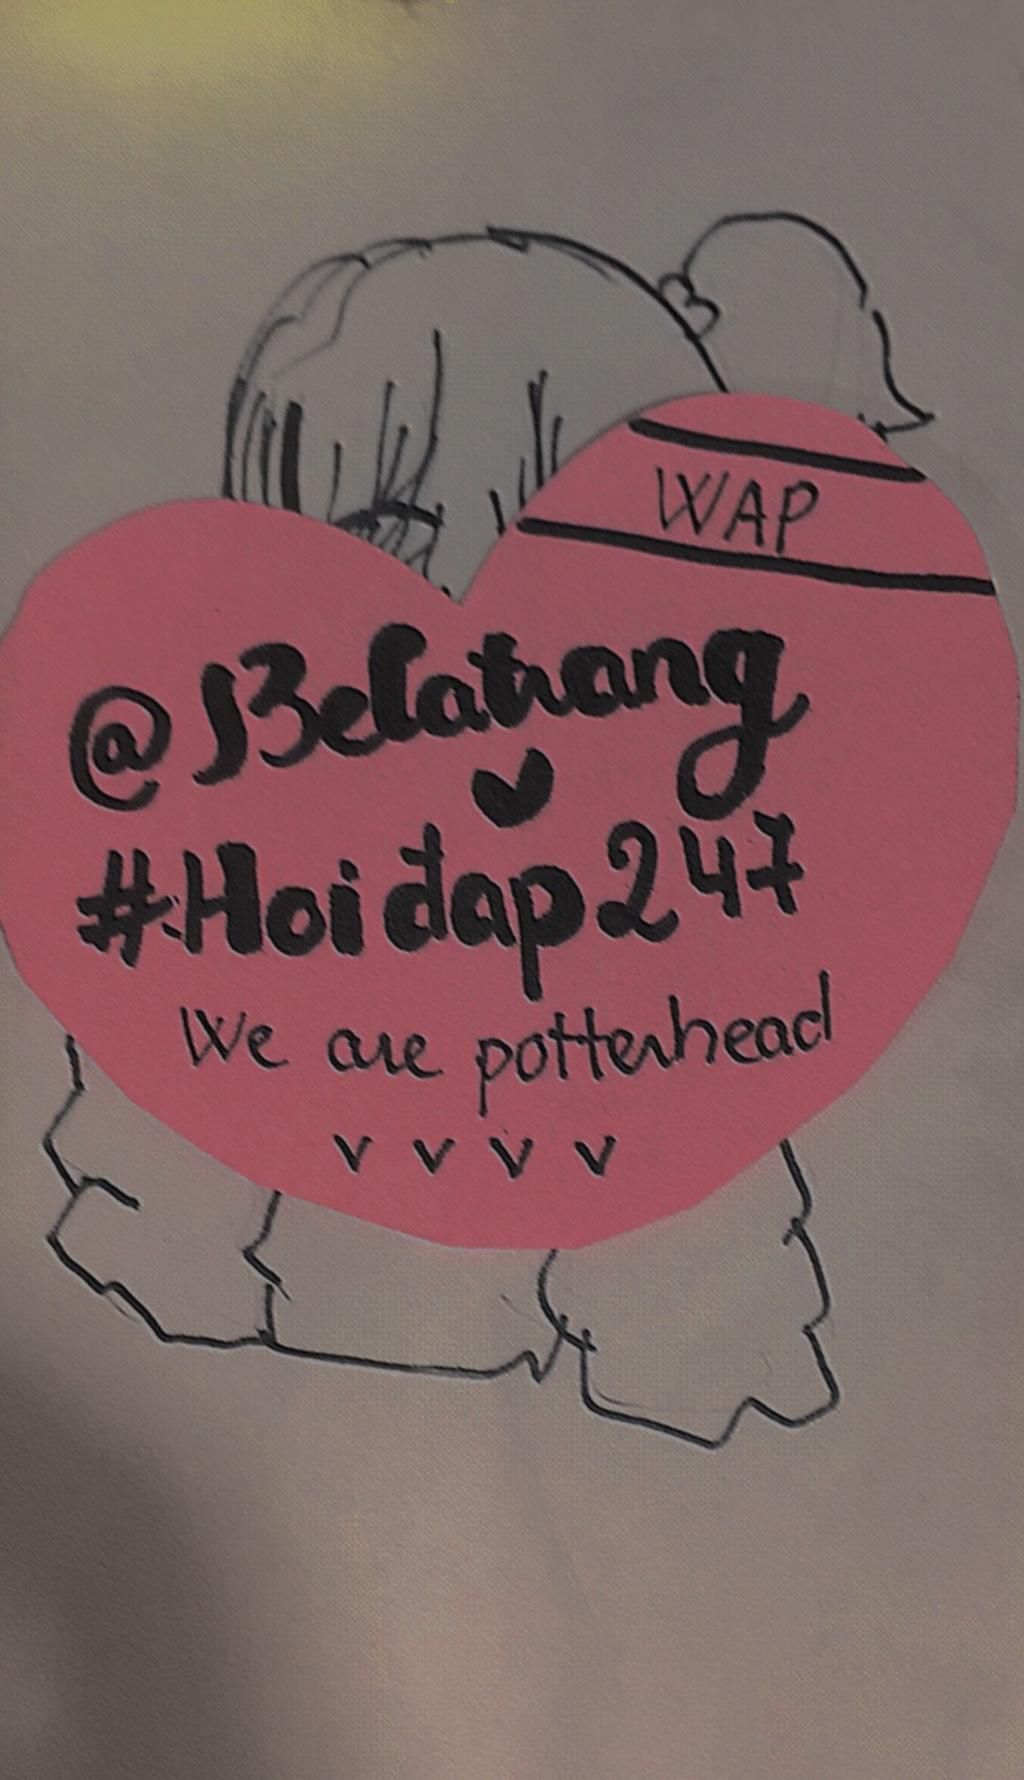 WAP
@Belatrang
#Hoiđap247
We are potterhead
v v v v